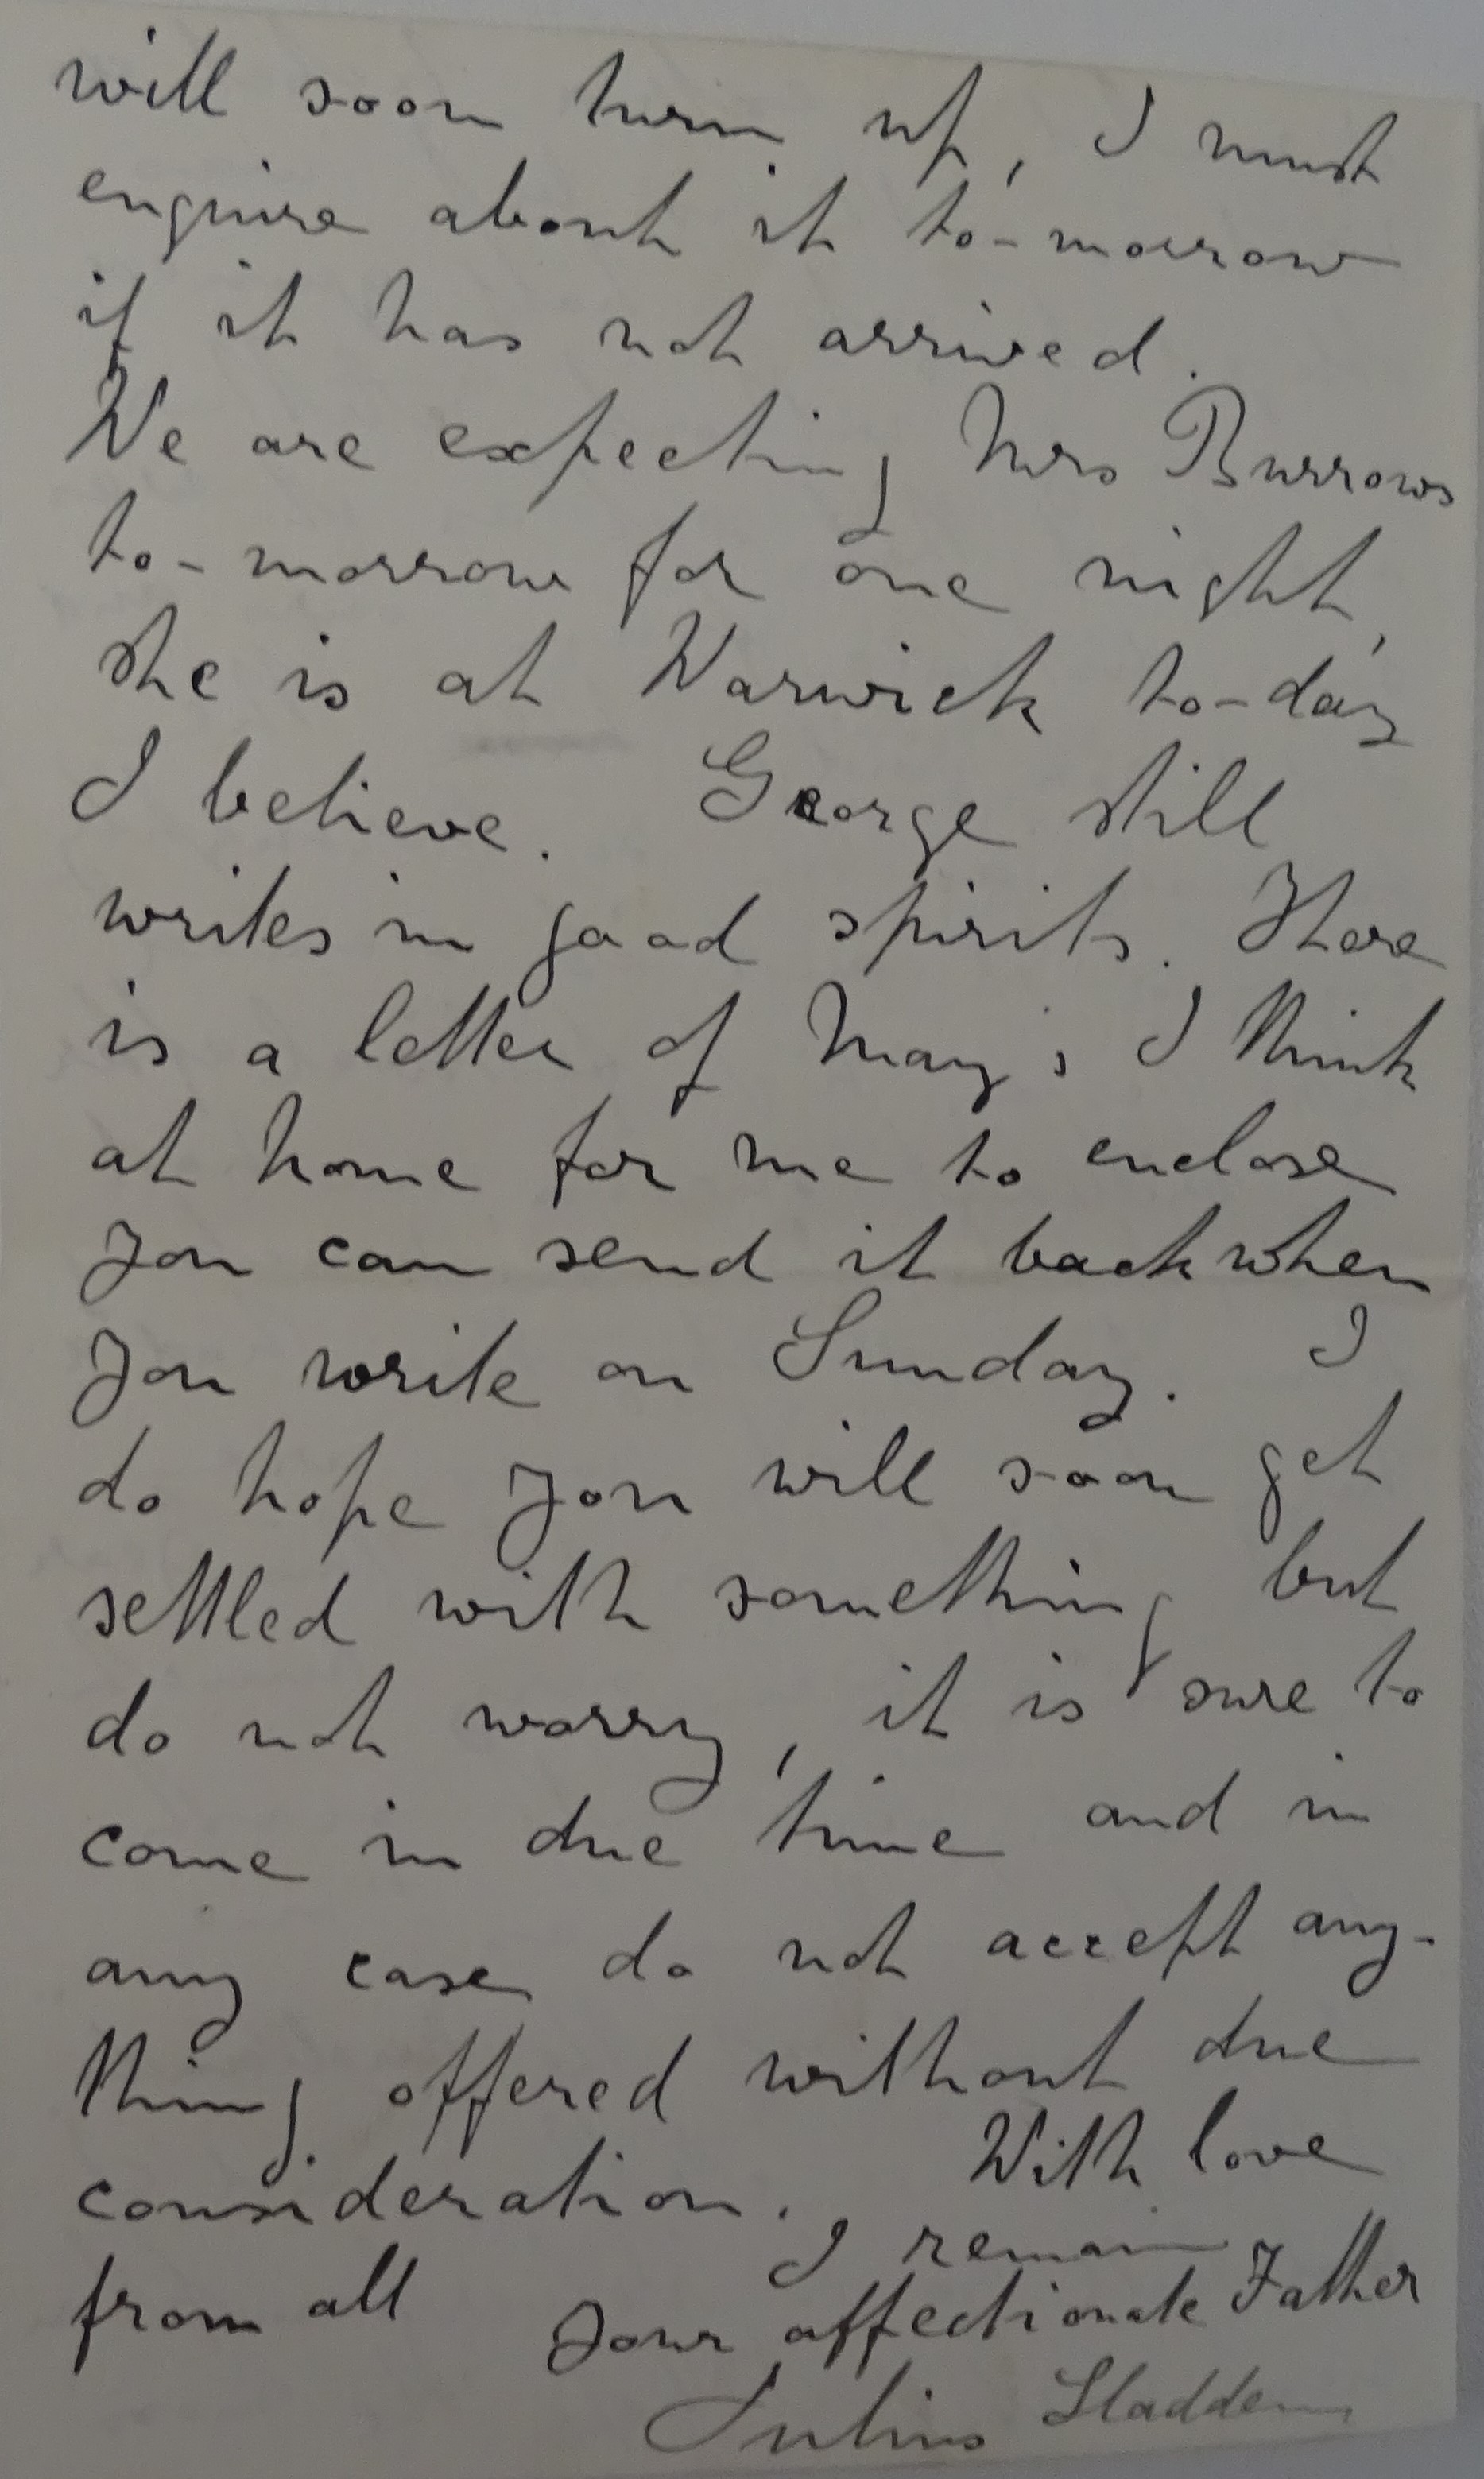 will soon turn up, I must
enquire about it to-morrow
if it has not arrived.
We are expecting Mrs Burrows
to-morrow for one night,
she is at Warwick to-day
I believe. George still
writes in good spirits. There
is a letter of May's I think
at home for me to enclose
you can send it back when
you write on Sunday. I
do hope you will soon get
settled with something but
do not worry, it is sure to
come in due time and in
any case do not accept any-
thing offered without due
consideration. With love
from all I remain
your affectionate Father
Julius Sladden